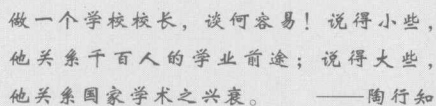 做一个学校校长，谈何容易！说得小些，
他关系千百人的学业前途；说得大些，
他关系国家学术之兴衰。 ——陶行知